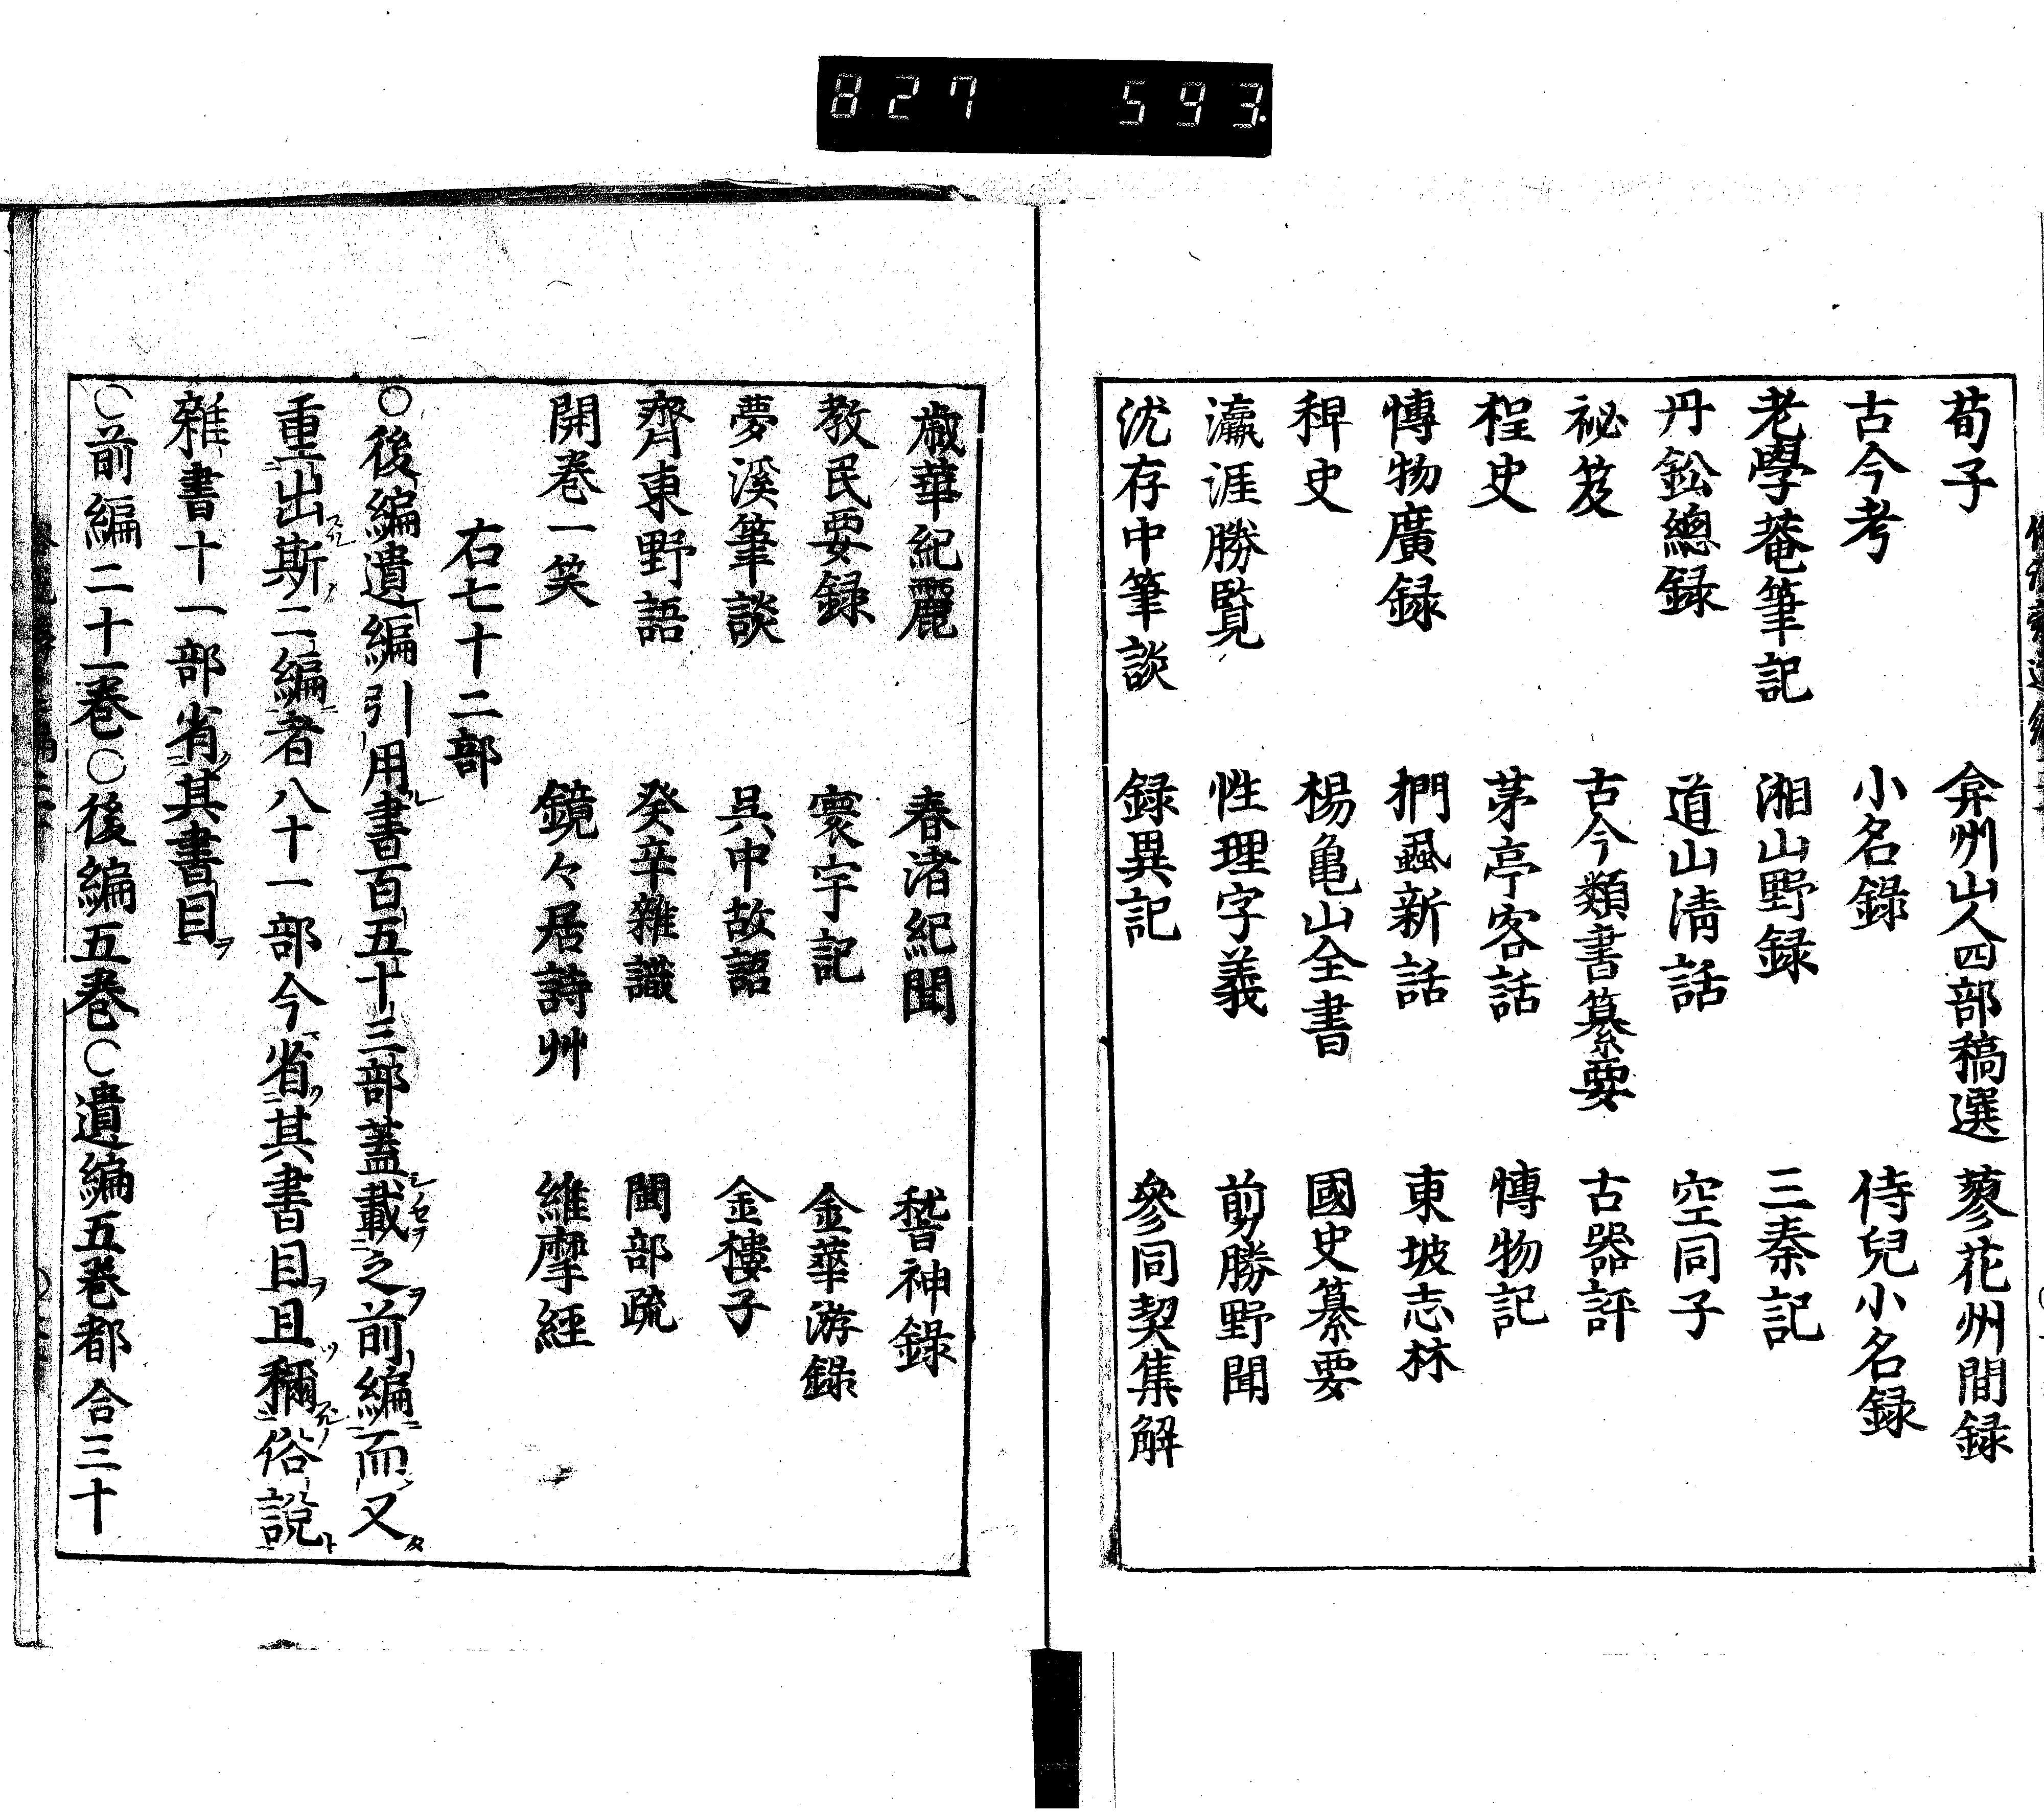 827 593
荀子 弇州山人四部稿選 蓼花州間録
古今考 小名錄 侍兒小名録
老學菴筆記 湘山野録 三秦記
丹鉛總録 道山清話 空同子
祕笈 古今類書纂要 古器評
桯史 茅亭客話 博物記
博物廣録 捫蝨新話 東坡志林
稗史 楊亀山全書 國史纂要
瀛涯勝覧 性理字義 剪勝野聞
沈存中筆談 録異記 參同契集解
歳華紀麗 春渚紀聞 稽神錄
教民要録 寰宇記 金華游錄
夢溪筆談 呉中故語 金樓子
齊東野語 癸辛雜識 閩部疏
開巻一笑 鏡々居詩艸 維摩経
右七十二部
○後編遺編引用書百五十三部蓋載之前編而又
重出斯二編者八十一部今省其書目且稱俗說
雜書十一部省其書目
○前編二十一巻○後編五巻○遺編五巻都合三十